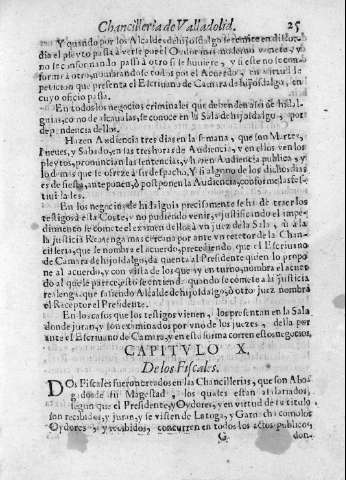 Chancilleria de Valladolid. 25
Y quando por los Alcalde de hijosdalgo se remite en discordia el pleyto passa a verse por el Oydor mas moderno
formare otro, nombrandose todos por el Acuerdo, en virtud de
peticion que presenta el Escriuano de Camara de hijosdalgo, en
cuyo oficio passa.
En todos los negocios criminales que dependen de hidal
guias, como de alcaualas, se conoce en la Sala de hijosdalgo, por
dependencia dellos.
Hazen Audiencia tres dias en la semana, que son Martes,
Iueues, y Sabado, en las tres horas de Audiencia, y en ellos ven los
pleytos, pronuncian las sentencias, y hazen Audiencia publica, y
lo demas que se ofreze à su despacho. Y si alguno de los dichos dias
es de fiesta, anteponen, ò postponen la Audiencia, conforme las fes
tiuidades.
En los negocios de hidalguia precisamente se ha de traer los
testigos à esta Corte, y no pudiendo venir, y justificando el impe
dimento se comete el examen dellos à vn juez de la Sala, ù à
la justicia Realenga mas cercana por ante vn receptor de la Chan
cilleria, que se nombra el acuerdo, precediendo, que el Escriuano
de Camara de hijosdalgo, dà quenta al Presidente quien lo propo
ne al acuerdo, y con vista de los que
do al que le parece, esto se entiende quando se comete à la justicia
realenga, que saliendo Alcalde de hijosdalgo, ò otro juez nombra
el Receptor el Presidente.
En los casos que los testigos vienen, los presentan en la Sala
donde juran, y son examinados por vno de los juezes, della por
ante el Escriuano de Camara, y en esta forma corren estos negocios.
CAPITVLO X.
De los Fiscales.
DOs Fiscales fueron creados en las Chancillerias, que son Abo
gados de su Magestad, los quales estan asalariados,
segun que el Presidente, y Oydores, y en virtud de su titulo
son recibidos, y juran, y se visten de Latoga, y Garnacha como los
Oydores, y recibidos, concurren en todos los actos publicos,
G. don-